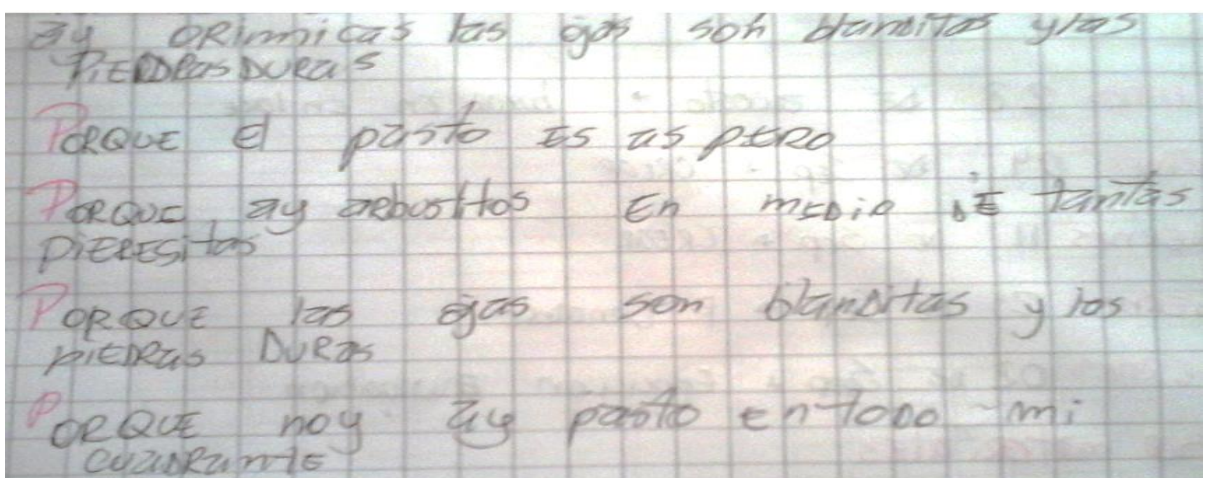 ay ORimicas las ojas son blanditas y las
PIEDRas DURas
PORQUE El pasto Es as pERO
PORQUE ay aRbusitos En mEDio DE tantas
piEREsitas
PORQUE las ojas son blanDitas y las
piEDRas DURas
PORQUE noy ay pasto en toDO mi
cuaDRantE